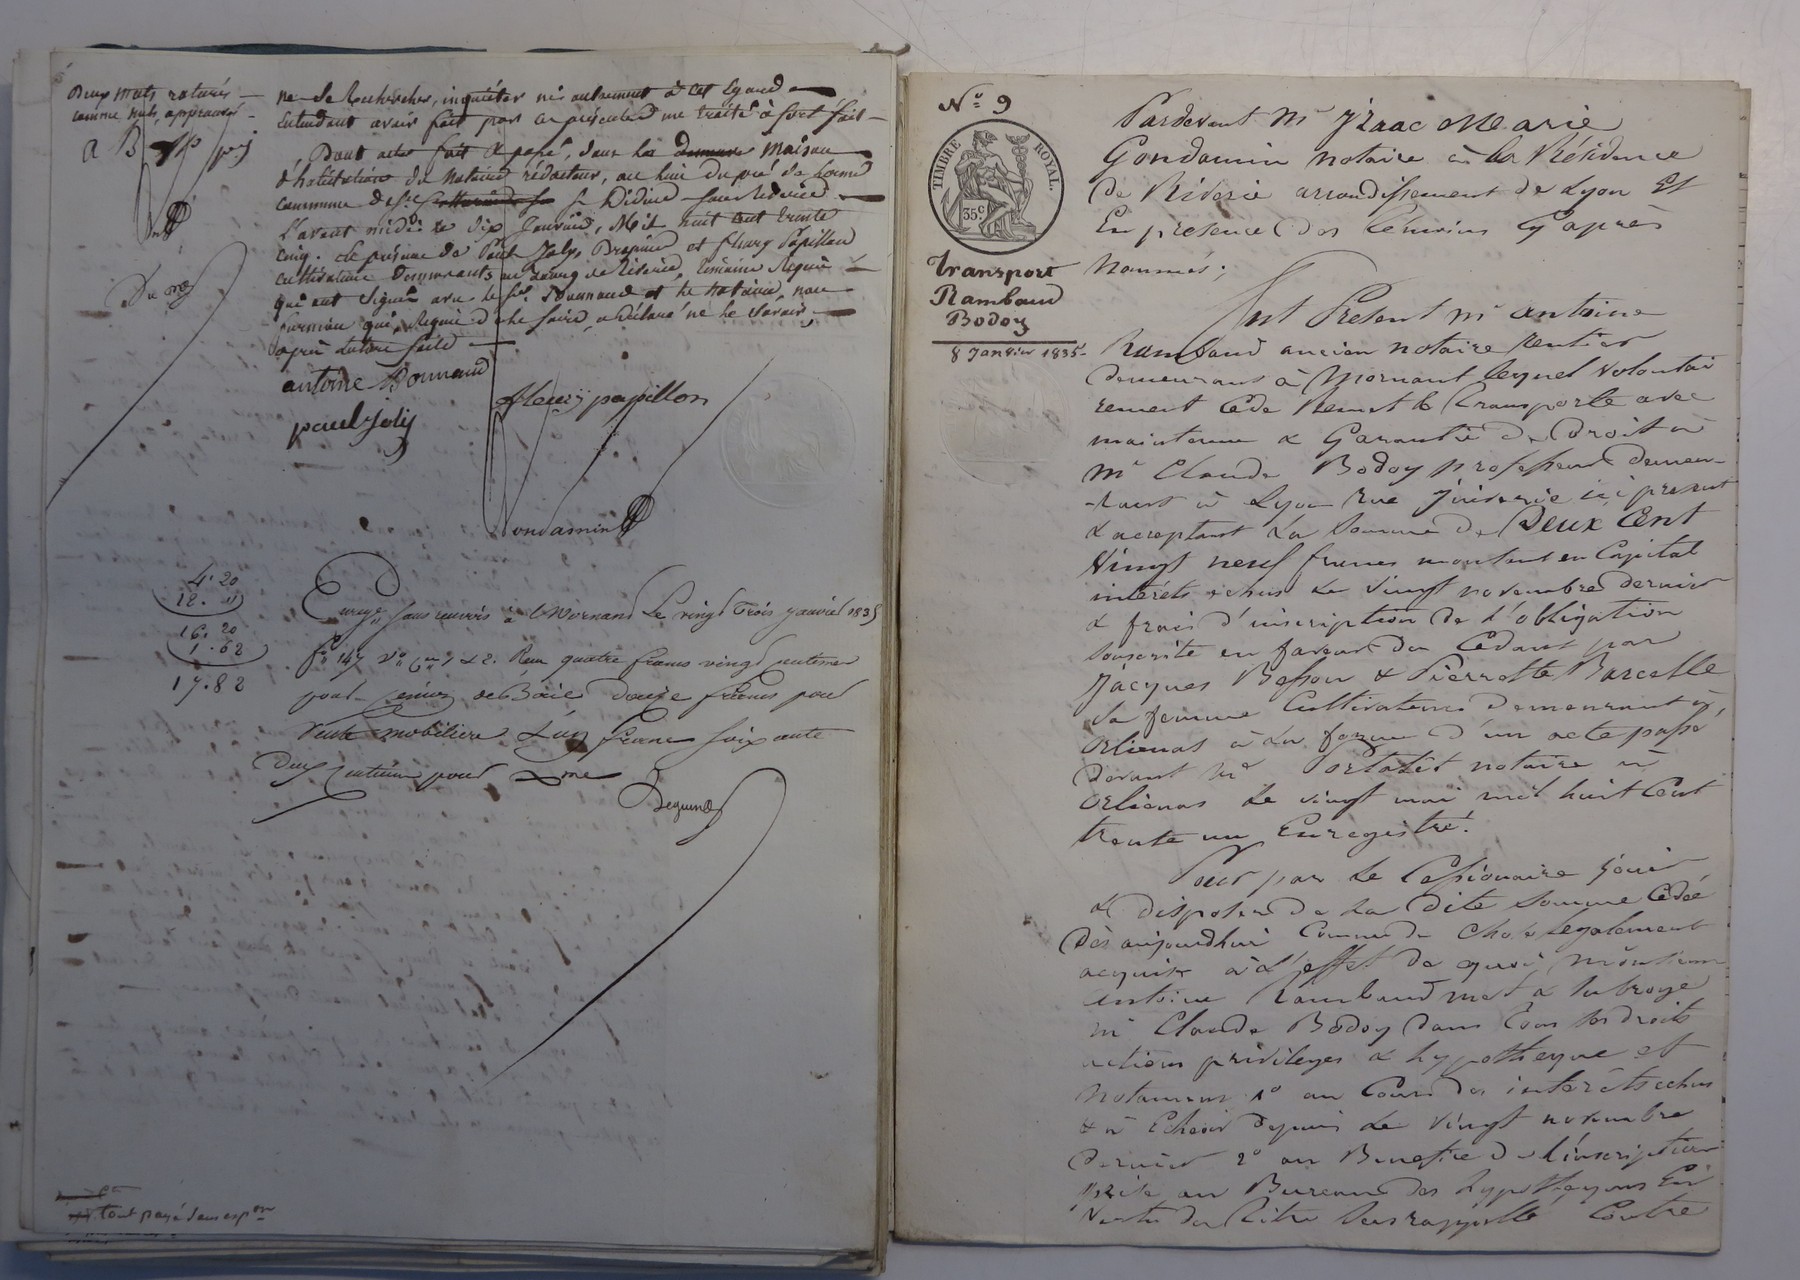 Deux mots raturés
comme nuls, approuvés
A B pp pj
ne se Rechercher, inquiéter ni autrement à cet égard
Entendant avoir fait par ces présentes une traité à fort fait
Dont acte fait & passé, dans la demeure maison
d'habitation du notaire rédacteur, au lieu du pré de
commune de St Didier sous Riverie
L'avant midi le dix Janvier, Mil huit cent trente
cinq. En présence de Paul Joly, Drapier et fleury Papillon
cultivateur Demeurants au bourg de Riverie, témoins Requis
qui ont signé avec le St. Bonnand et le notaire, non
qui, Requis de le faire, a déclaré ne le savoir,
après lecture faite
antoine Bonnand
fleury papillon
paul Joly
Gondamin
4. 20
12. "
16. 20
1. 62
17. 82
Enregé sans renvois à Mornant Le vingt trois janvier 1835
fo 147 Vo Ces 7 & 8. Reçu quatre francs vingt centimes
pour de Baie Douze francs pour
Vente mobilière & un franc soixante
Deux centimes pour dme
Beguin
tout payé Sauf
No 9
TIMBRE ROYAL.
35c
Transport
Rambaud
Bodoy
8 Janvier 1835
Pardevant Mr Jzaac Marie
Gondamin notaire à la Résidence
de Riverie arrondissement de Lyon Et
En présence des témoins Cy après
nommés;
Fut Présent Mr antoine
Rambaud ancien notaire Rentier
demeurant à Mornant lequel volontai
rement Cède Remet & transporte avec
maintenue & Garantie de Droit à
Mr Claude Bodoy professeur demeu-
-rant à Lyon rue Juiverie ici présent
& acceptant La Somme de Deux Cent
Vingt neuf francs montant en Capital
intérêts échus Le vingt novembre dernier
& frais d'inscription de L'obligation
souscrite en faveur du Cédant par
Jacques Besson & Pierrette Barcelle
sa femme Cultivateurs Demeurant à
orlienas à La forme d'un acte passé
Devant Me Portalet notaire à
orlienas Le vingt mai mil huit Cent
trente un Enregistré.
Pour par Le Cessionaire Jouir
& disposer de La dite Somme Cédée
Dès aujourdhui Comme de Chose Legalement
acquise à L'effet de quoi Monsieur
antoine Rambaud met & subroge
Mr Claude Bodoy dans tous ses droits
actions privileges & hypotheque et
notamment 1o au Cours des intérêts echus
& à Echoir depuis Le vingt novembre
dernier 2o au Benefice de L'inscription
Prise au Bureau des hypotheques En
Vertu du titre Susrappellé Contre